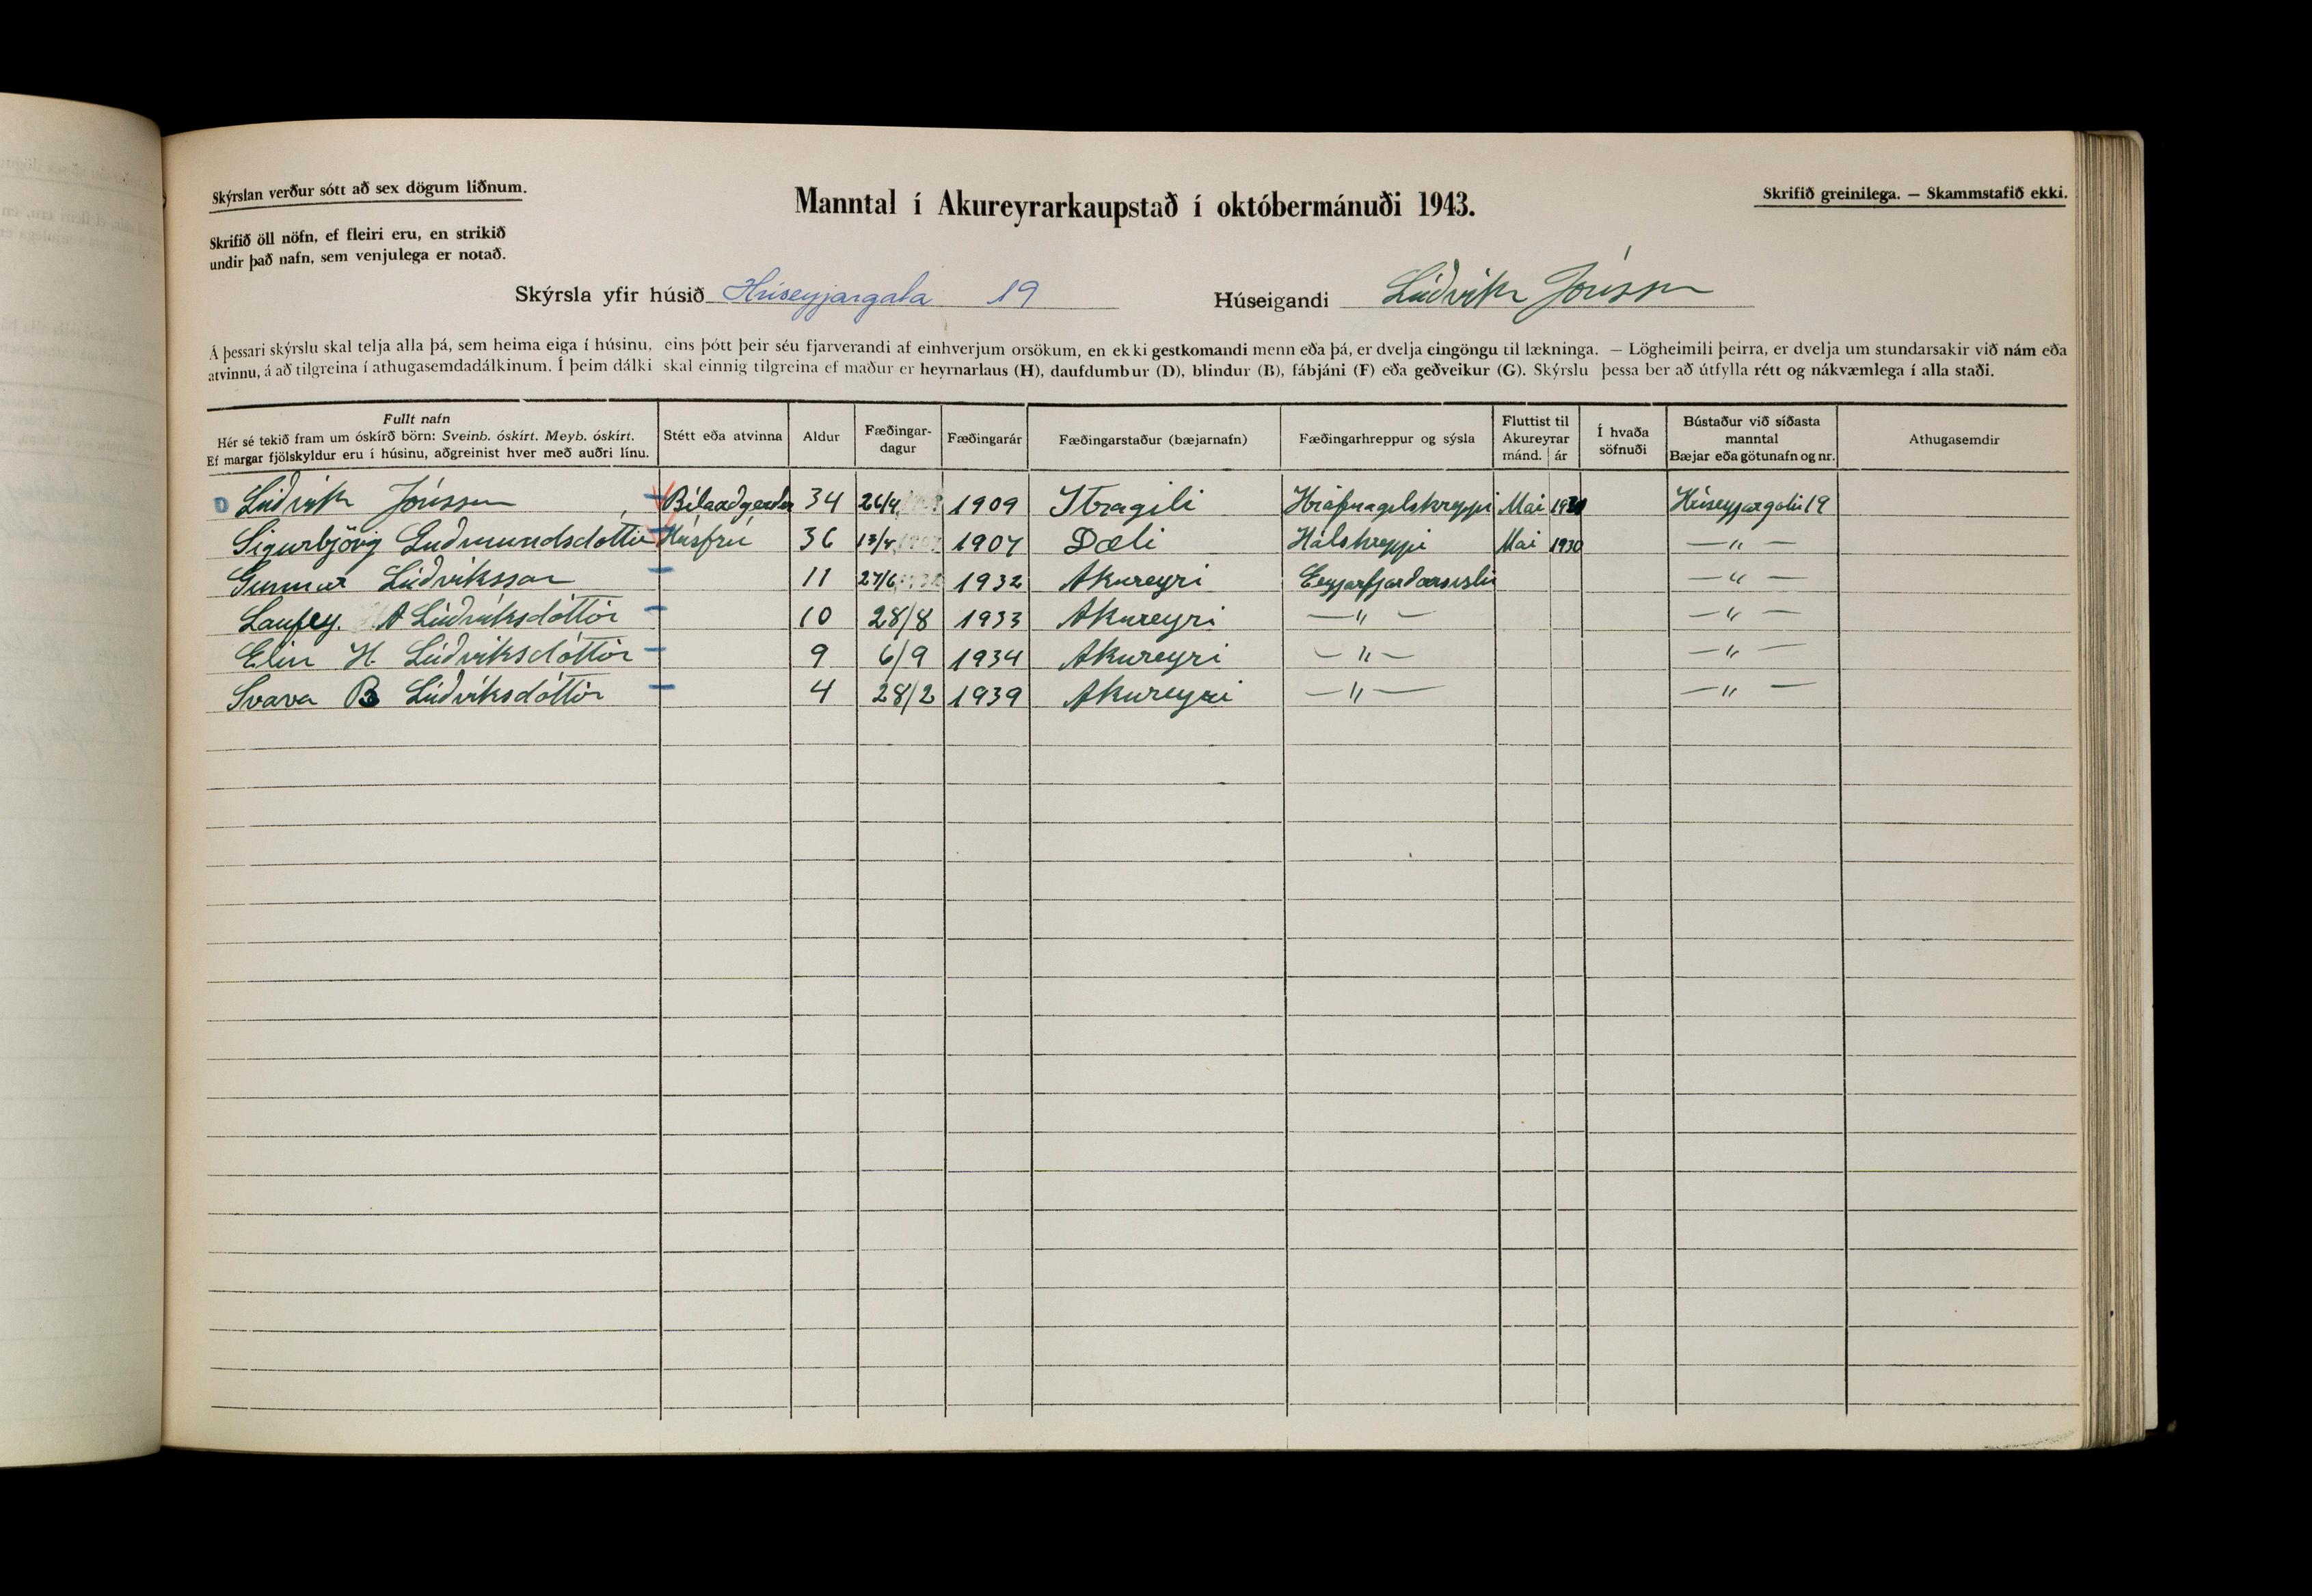 Skýrslan verður sótt að sex dögum liðnum.
Manntal í Akureyrarkaupstað í októbermánuði 1943.
Skrifið greinilega. — Skammstafið ekki.
Skrifið öll nöfn, ef fleiri eru, en strikið
undir það nafn, sem venjulega er notað.
Skýrsla yfir húsið Húseyjargata 19 Húseigandi Lúdvík Jónsson
Á þessari skýrslu skal telja alla þá, sem heima eiga í húsinu, eins þótt þeir séu fjarverandi af einhverjum orsökum, en ekki gestkomandi menn eða þá, er dvelja eingöngu til lækninga. — Lögheimili þeirra, er dvelja um stundarsakir við nám eða
atvinnu, á að tilgreina í athugasemdadálkinum. Í þeim dálki skal einnig tilgreina ef maður er heyrnarlaus (H), daufdumbur (D), blindur (B), fábjáni (F) eða geðveikur (G). Skýrslu þessa ber að útfylla rétt og nákvæmlega í alla staði.
Fullt nafn
Hér sé tekið fram um óskírð börn: Sveinb. óskírt. Meyb. óskírt.
Ef margar fjölskyldur eru í húsinu, aðgreinist hver með auðri línu.
Stétt eða atvinna
Aldur
Fæðingar-
dagur
Fæðingarár
Fæðingarstaður (bæjarnafn)
Fæðingarhreppur og sýsla
Fluttist til
Akureyrar
mánd. ár
Í hvaða
söfnuði
Bústaður við síðasta
manntal
Bæjar eða götunafn og nr.
Athugasemdir
Lúdvík Jónsson 34 26/4 1909 Hrafnagilshreppi Mai Húseyjargötu 19
Sigurbjörg Gudmundsdóttir Húsfrú 36 13/4 1907 Dæli Hálshreppi Mai 1930 — " —
Gunnar Lúdviksson 11 27/6 1932 Akureyri Eyjarfjardarsíslu — " —
Laufey. A Lúdviksdóttir 10 28/8 1933 Akureyri — " — — " —
Elin H. Lúdviksdóttir 9 6/9 1934 Akureyri — " — — " —
Svava B Lúdviksdóttir 4 28/2 1939 Akureyri — " — — " —